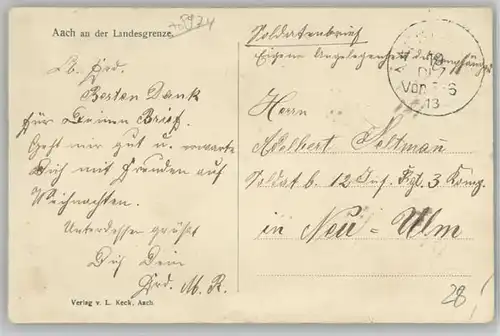 5924
Aach an der Landesgrenze.
Lb. Frd.
Besten Dank
für Deinen Brief.
Geht mir gut u. erwarte
Dich mit Freuden auf
Weihnachten.
Unterdessen grüßt
Dich Dein
Frd. M. R.
Verlag v. L. Keck, Aach.
Soldatenbrief
Eigene Angelegenheit des Empfängers
DEZ
13
Herrn
Adelbert
Soldat b. 12 Inf. Rgt. 3 Komp.
in Neu-Ulm
28